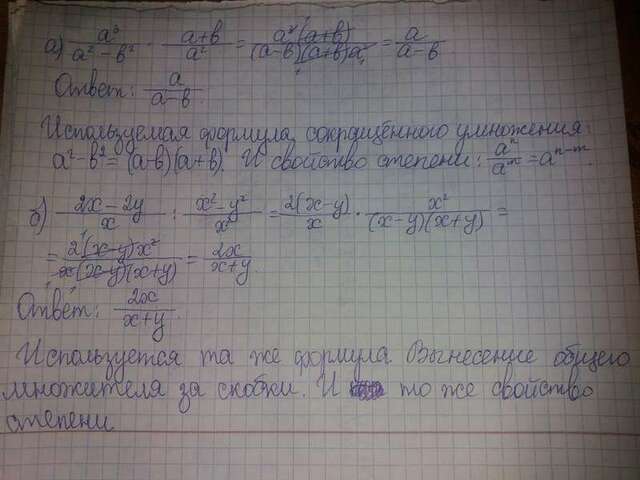 а) a³/(a² – b²) · (a+b)/a² = a³(a+b)/((a–b)(a+b)a²) = a/(a–b)
Ответ: a/(a–b).
Используемая формула сокращённого умножения:
a²–b² = (a–b)(a+b). И свойство степени: aⁿ/aᵐ = aⁿ⁻ᵐ.
б) (2x – 2y)/x : (x² – y²)/x² = 2(x–y)/x · x²/((x–y)(x+y)) =
= 2(x–y)x²/(x(x–y)(x+y)) = 2x/(x+y).
Ответ: 2x/(x+y).
Используется та же формула. Вынесение общего
множителя за скобки. И то же свойство
степени